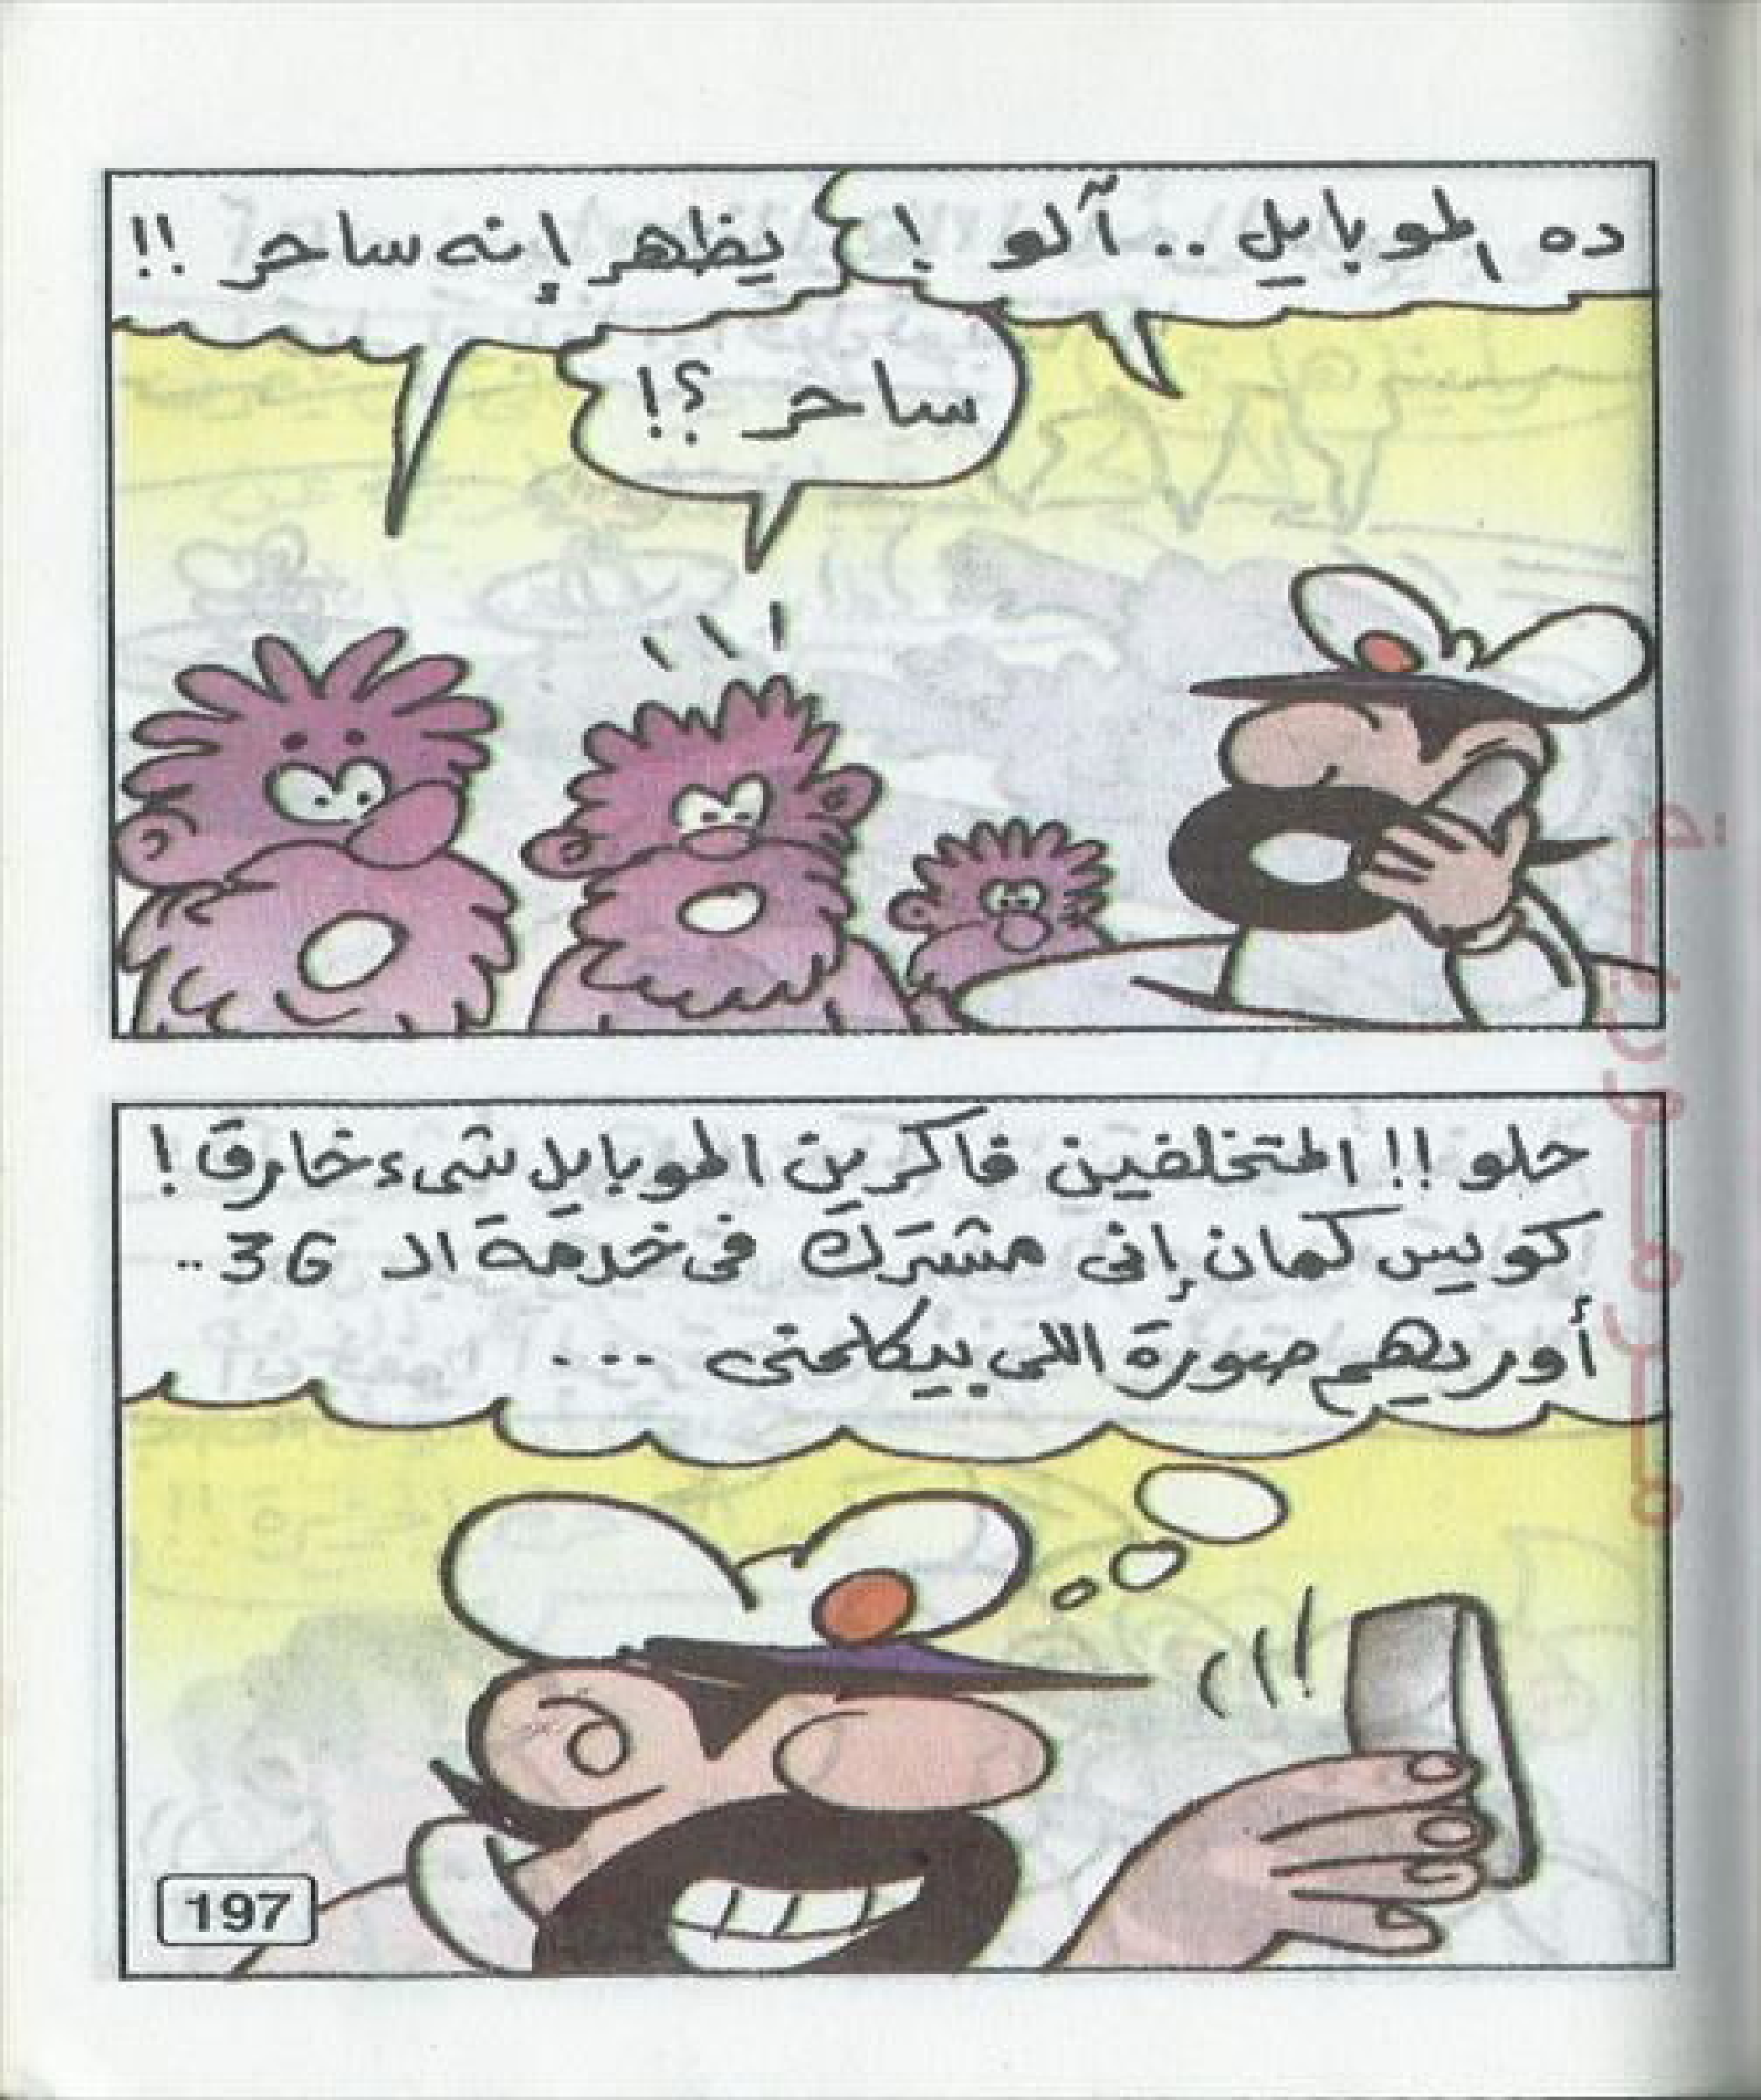 ده الموبايل .. آلو !
يظهر إنه ساحر !!
ساحر ؟!
حلو !! المتخلفين فاكرين الموبايل شىء خارق !
كويس كمان إنى مشترك فى خدمة الـ 3G ..
أوريهم صورة اللى بيكلمنى ...
197